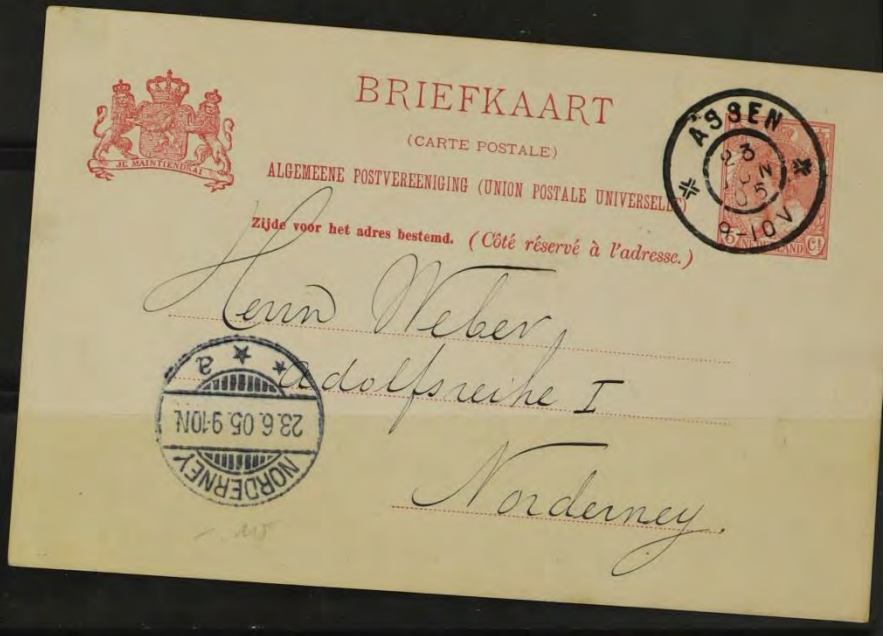 BRIEFKAART
(CARTE POSTALE)
ALGEMEENE POSTVEREENIGING (UNION POSTALE UNIVERSELLE)
Zijde voor het adres bestemd. (Côté réservé à l'adresse.)
JE MAINTIENDRAI
ASSEN
23
JUN
05
9-10V
NEDERLAND Ct
Herrn Weber,
Adolfsreihe I
Norderney.
NORDERNEY
23.6.05.9-10N.
* * a